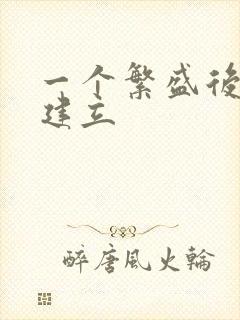 一个繁盛後
建立
醉唐風火輪